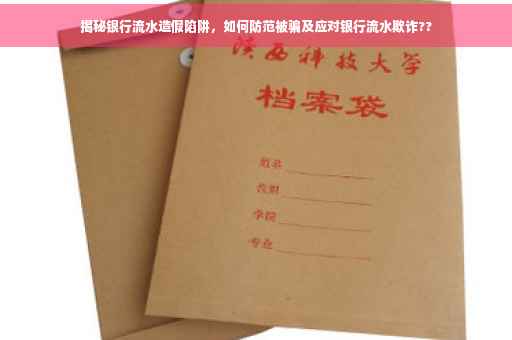 揭秘银行流水造假陷阱，如何防范被骗及应对银行流水欺诈??
陕西科技大学
档案袋
学院
专业